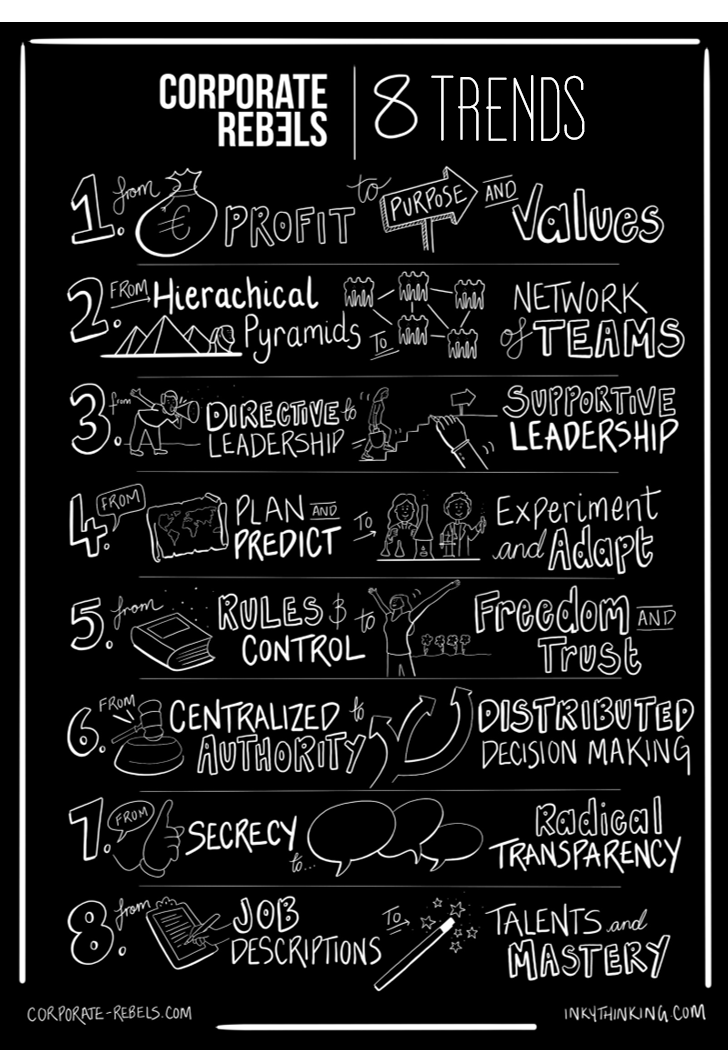 CORPORATE REBELS | 8 TRENDS
1. from € PROFIT to PURPOSE AND Values
2. FROM Hierachical Pyramids TO NETWORK of TEAMS
3. from DIRECTIVE LEADERSHIP to SUPPORTIVE LEADERSHIP
4. FROM PLAN AND PREDICT TO Experiment and Adapt
5. from RULES & CONTROL to Freedom AND Trust
6. FROM CENTRALIZED AUTHORITY to DISTRIBUTED DECISION MAKING
7. FROM SECRECY to... Radical TRANSPARENCY
8. from JOB DESCRIPTIONS TO TALENTS and MASTERY
CORPORATE-REBELS.COM
INKYTHINKING.COM